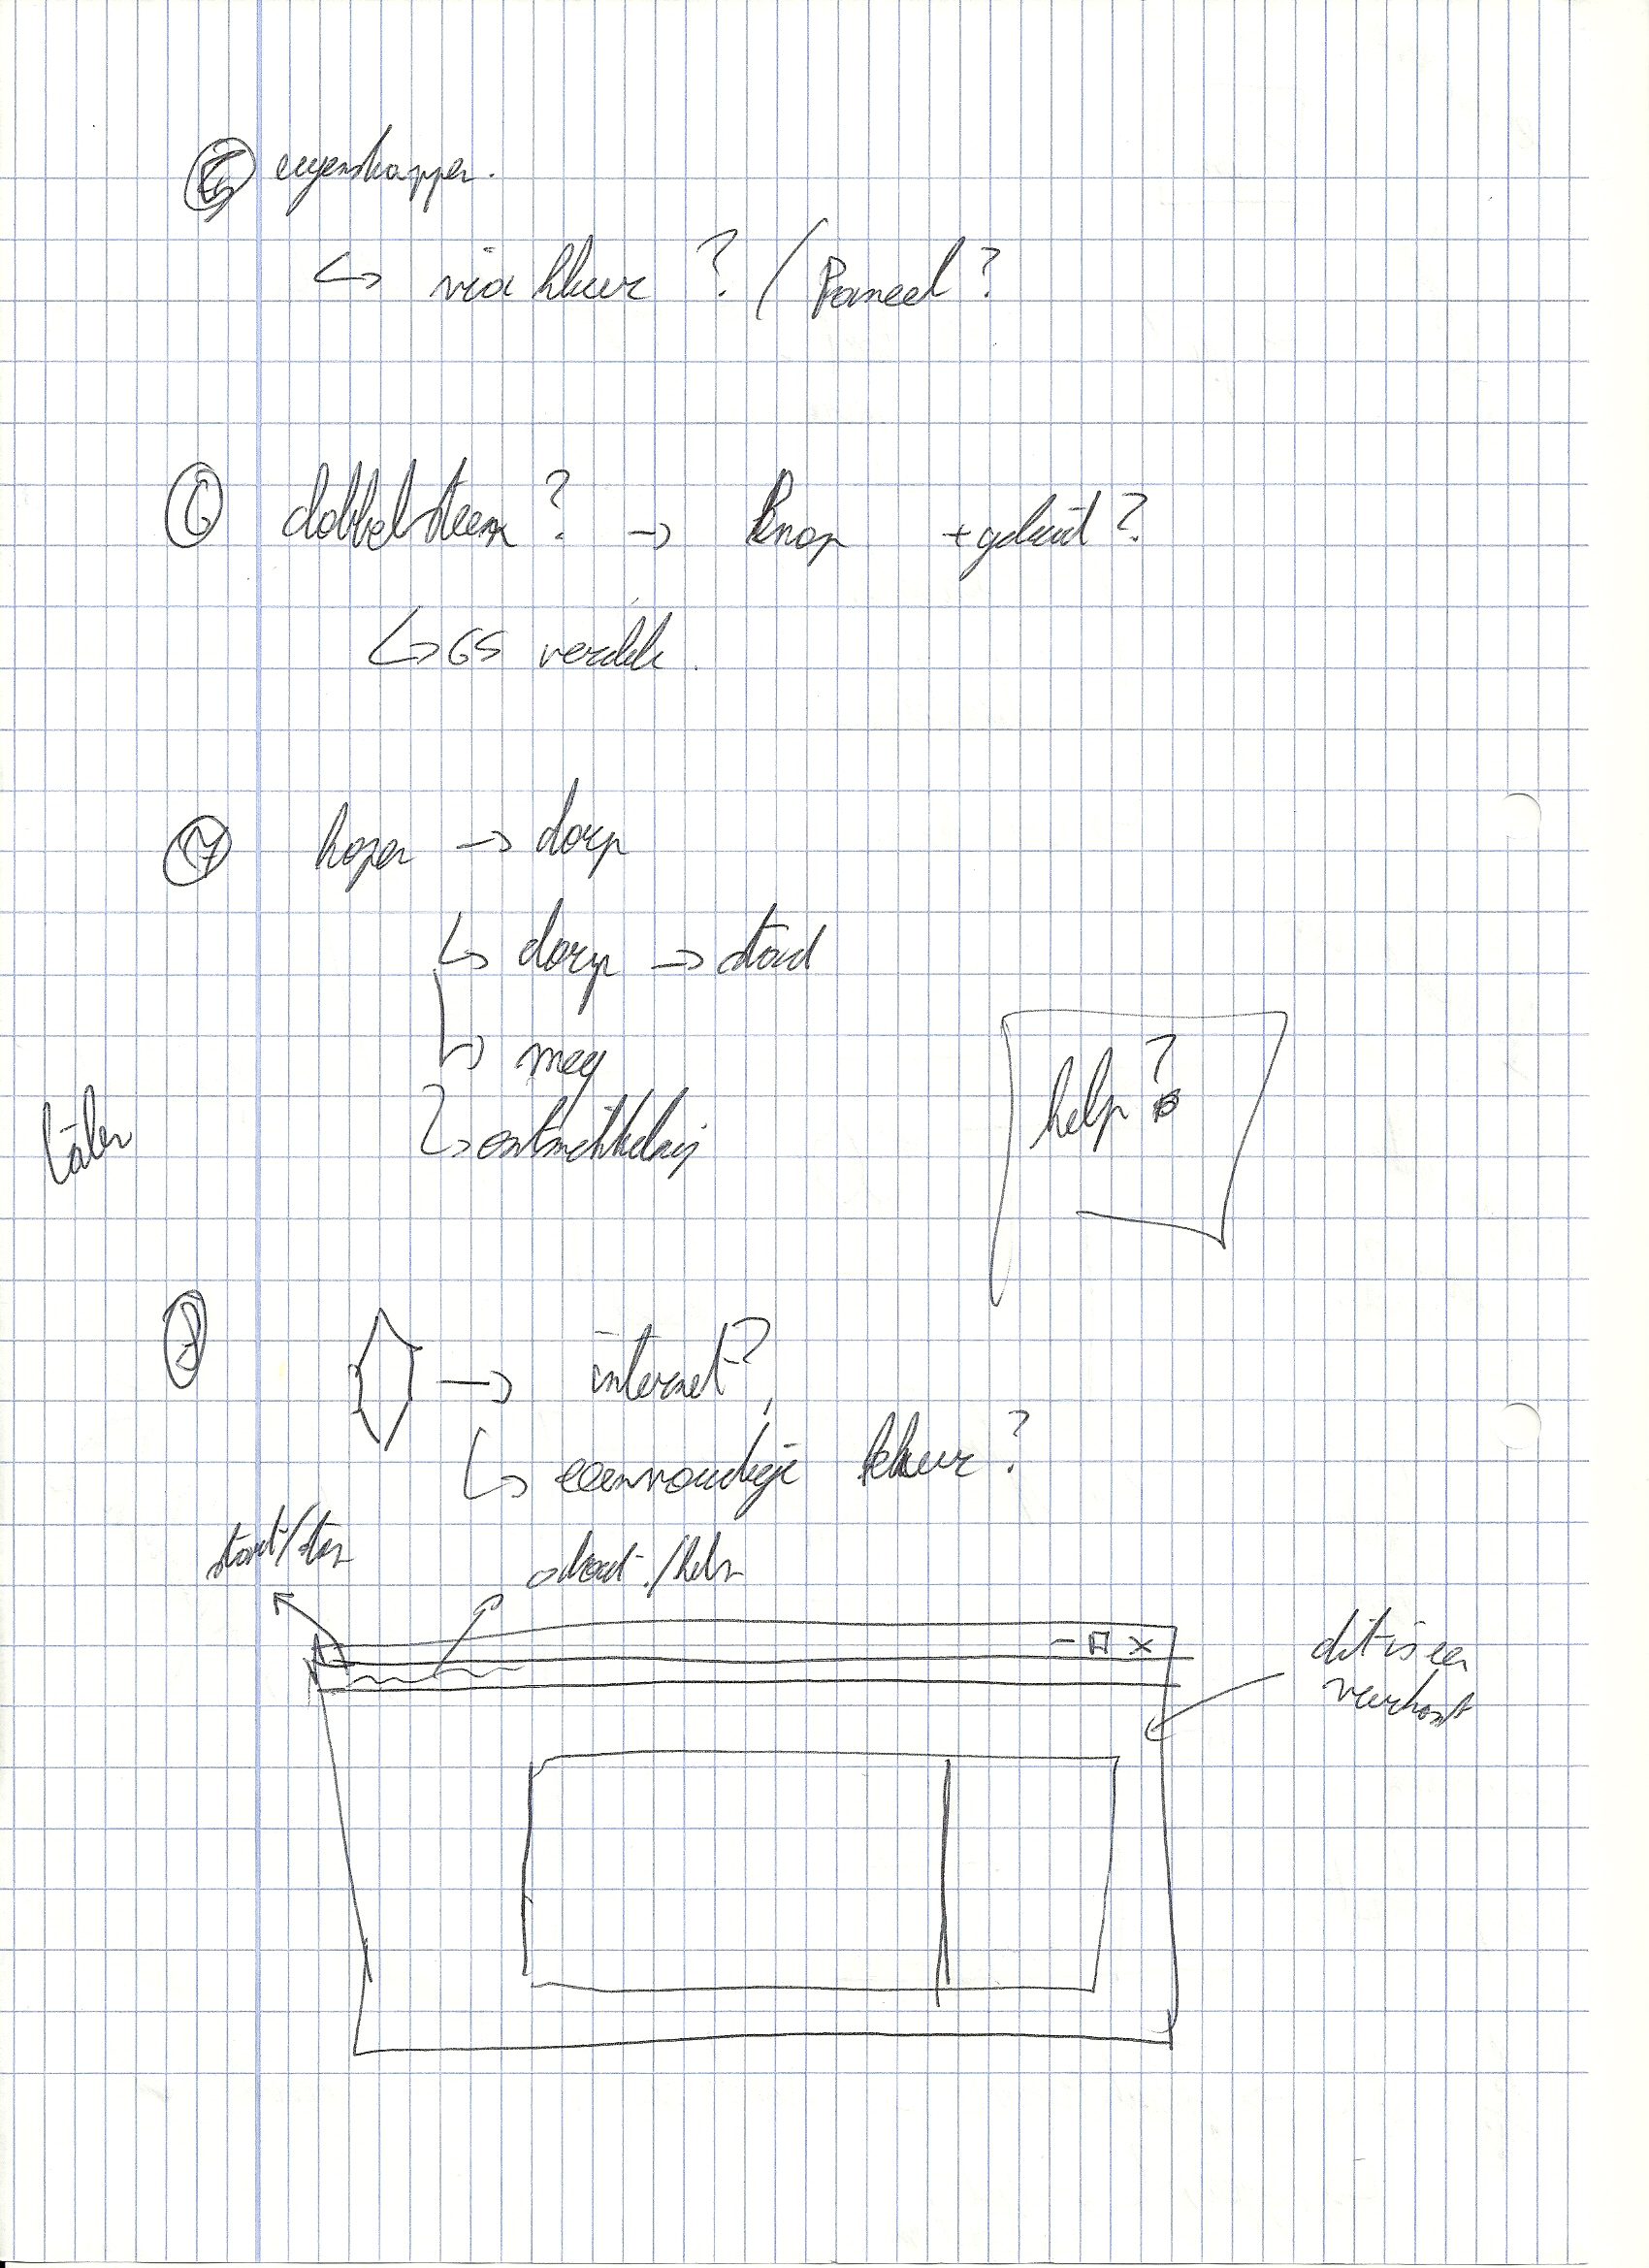 eigenschappen.
↳ via kleur ? / Paneel ?
⑥ dobbelsteen ? → Knop + geluid ?
↳ GS
⑦ kopen → dorp
↳ dorp → stad
↳ weg
↳ ontwikkeling
help ?
⑧ → internet ?
↳ eenvoudige kleur ?
start/stop
about /help
- x
dit is een